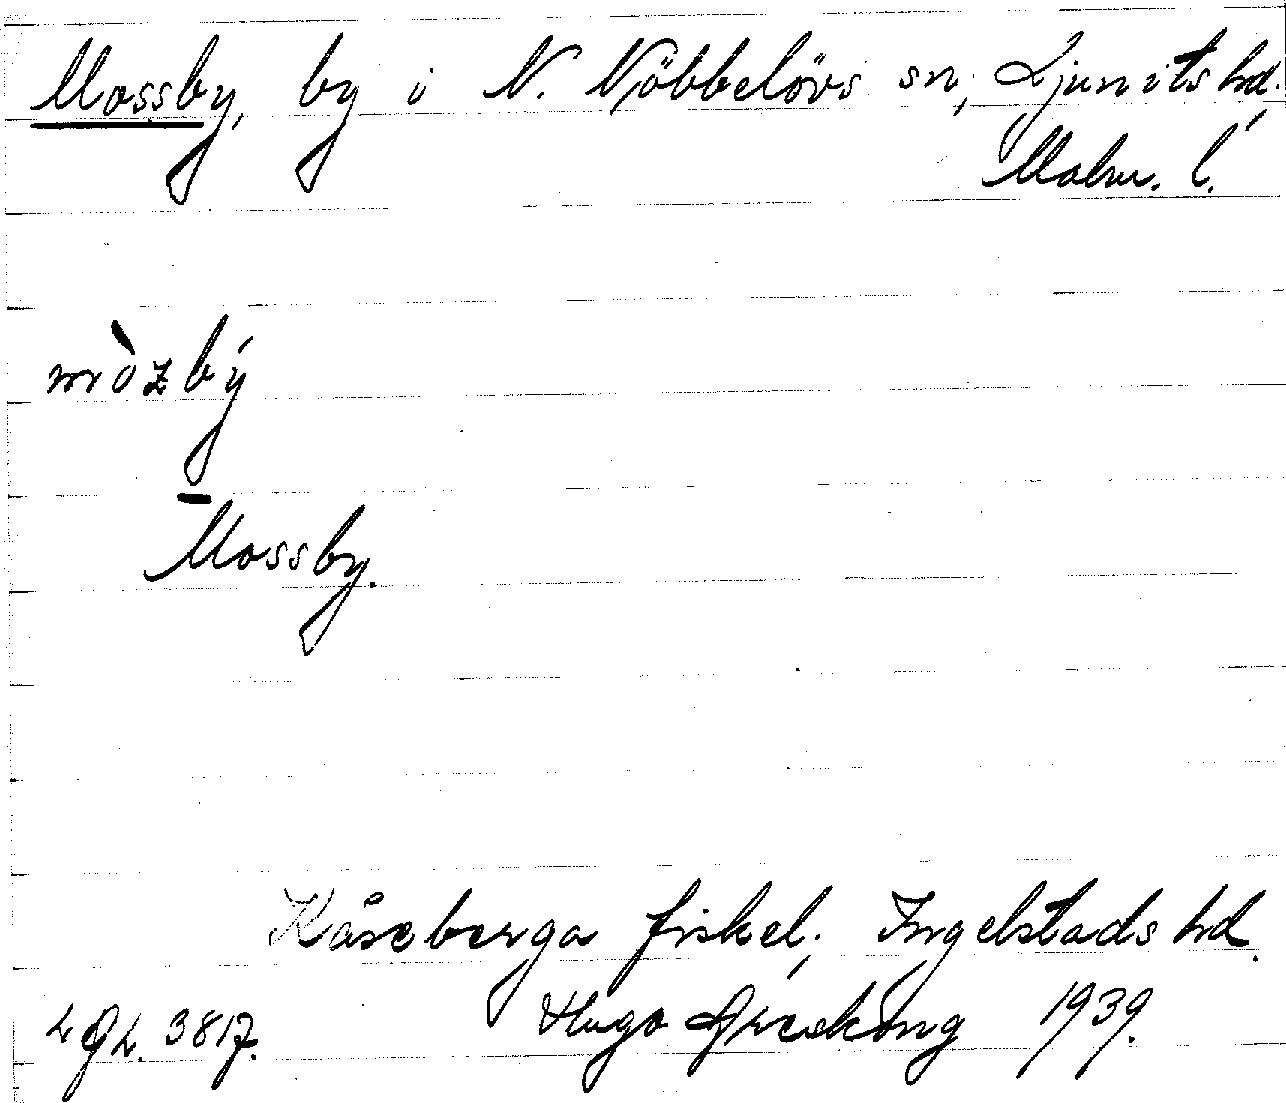 Mossby, by i N. Nöbbelövs sn, Ljunits hd.,
Malm. l.
mòzbý
Mossby.
Kåseberga fiskel., Ingelstads hd.
Hugo Areskoug 1939.
LGL. 3817.